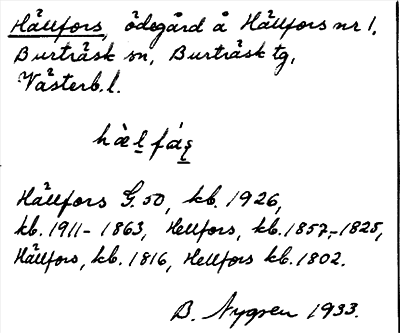 Hällfors, ödegård å Hällfors nr 1,
Burträsk sn, Burträsk tg,
Västerb. l.
hὰl̲ fás̲
Hällfors G. 50, kb. 1926,
kb. 1911–1863, Hellfors, kb. 1857–1825,
Hällfors, kb. 1816, Hellfors kb. 1802.
B. Nygren 1933.